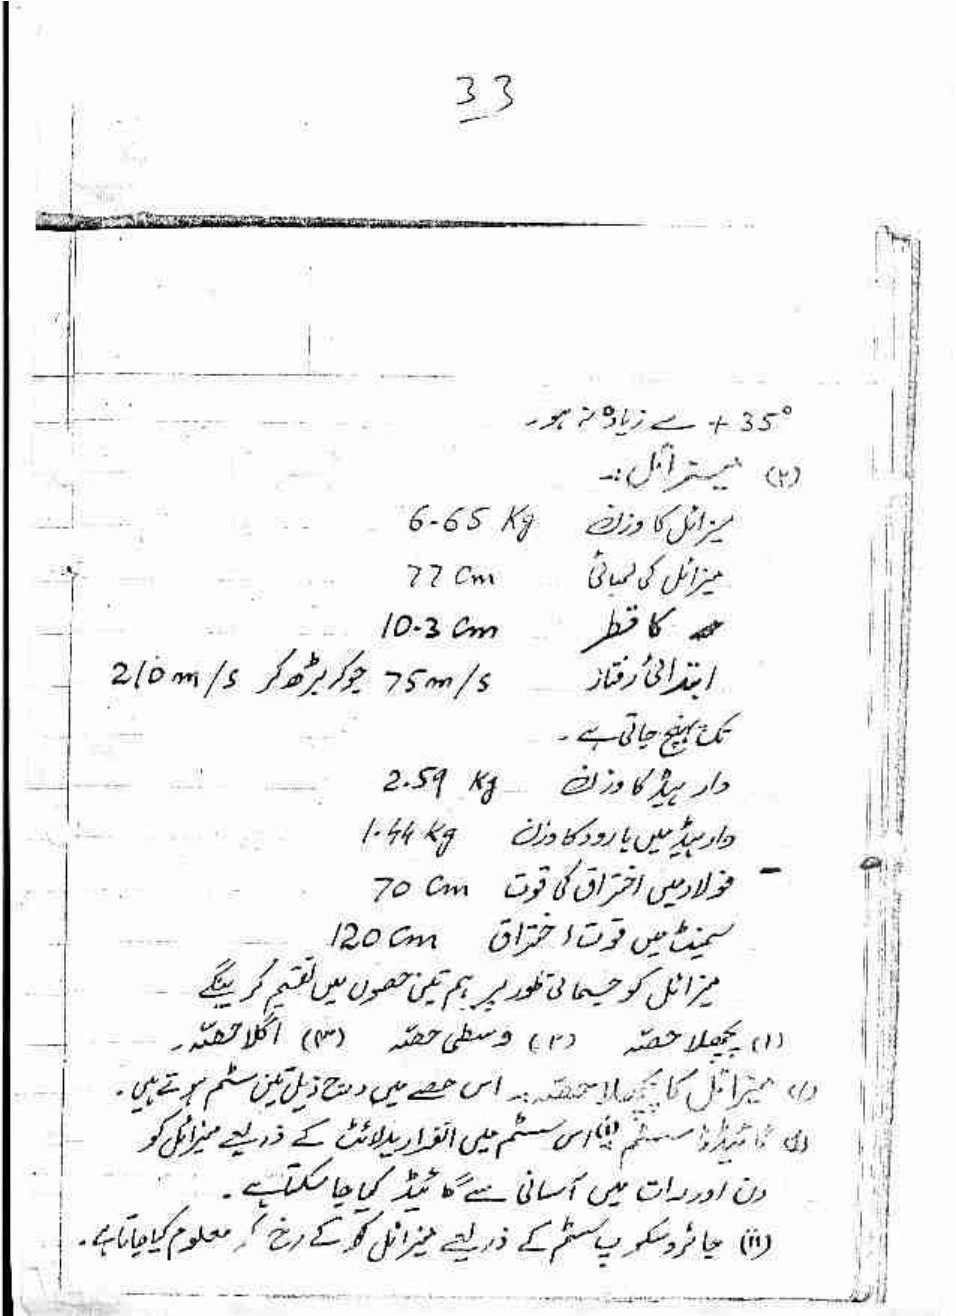 33
+ 35° سے زیادہ نہ ہو۔
(۲) میزائل :۔
میزائل کا وزن 6.65 Kg
میزائل کی لمبائی 77 Cm
کا قطر 10.3 Cm
ابتدائی رفتار 75 m/s جو کر بڑھ کر 210 m/s
تک پہنچ جاتی ہے ۔
وار ہیڈ کا وزن 2.59 Kg
وار ہیڈ میں بارود کا وزن 1.44 Kg
فولاد میں اختراق کی قوت 70 Cm
سیمنٹ میں قوت اختراق 120 Cm
میزائل کو جسمانی طور پر ہم تین حصوں میں تقسیم کریںگے
(۱) پچھلا حصّہ (۲) وسطی حصّہ (۳) اگلا حصّہ ۔
(۱) میزائل کا پچھلا حصّہ :۔ اس حصے میں درج ذیل تین سسٹم ہوتے ہیں ۔
گائیڈڈ سسٹم (i) اس سسٹم میں انفراریڈ لائٹ کے ذریعے میزائل کو
دن اور رات میں آسانی سے گائیڈ کیا جا سکتا ہے ۔
(ii) جائروسکوپ سسٹم کے ذریعے میزائل کے رخ کو معلوم کیا جاتا ہے ۔